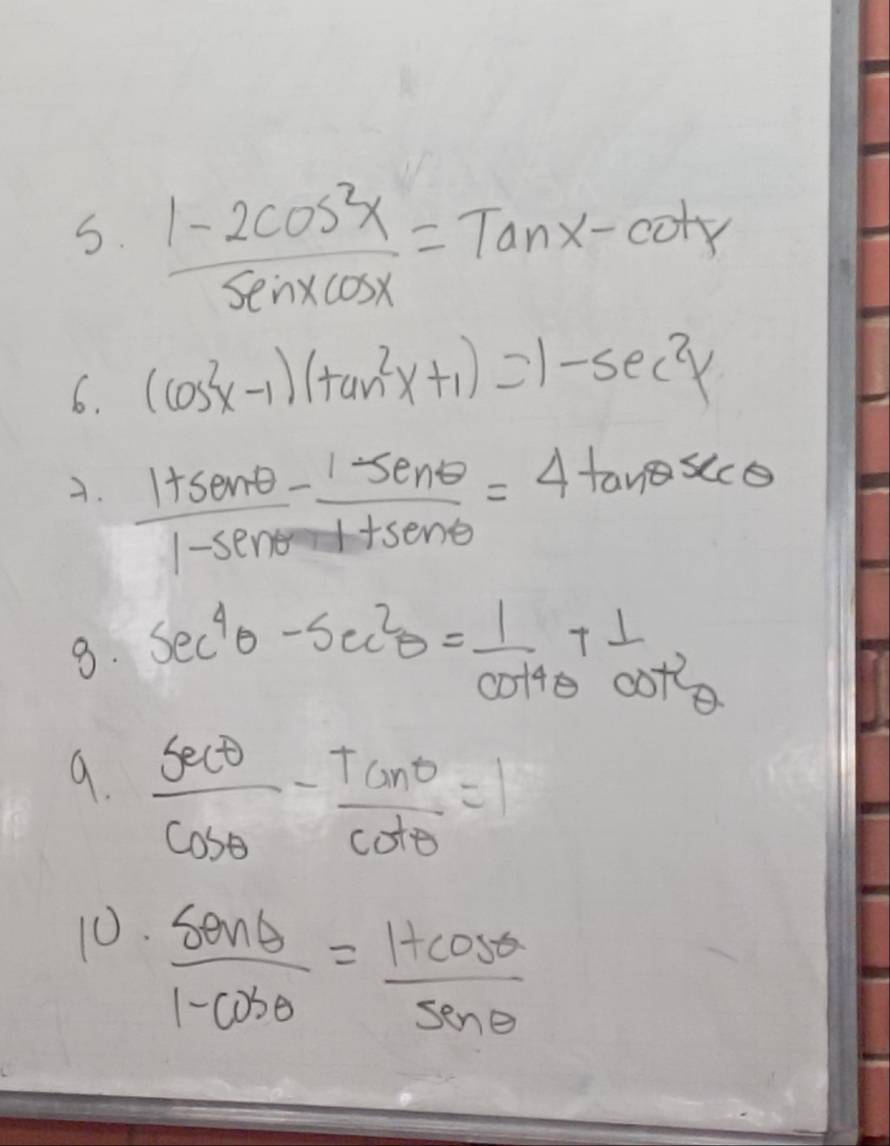 5. (1-2cos²x)/(senxcosx) = Tanx-cotx
6. (cos²x-1)(tan²x+1)=1-sec²x
7. (1+senθ)/(1-senθ) - (1-senθ)/(1+senθ) = 4tanθsecθ
8. sec⁴θ-Sec²θ = 1/cot⁴θ + 1/cot²θ
9. Secθ/Cosθ - Tanθ/cotθ = 1
10. Senθ/(1-cosθ) = (1+cosθ)/senθ